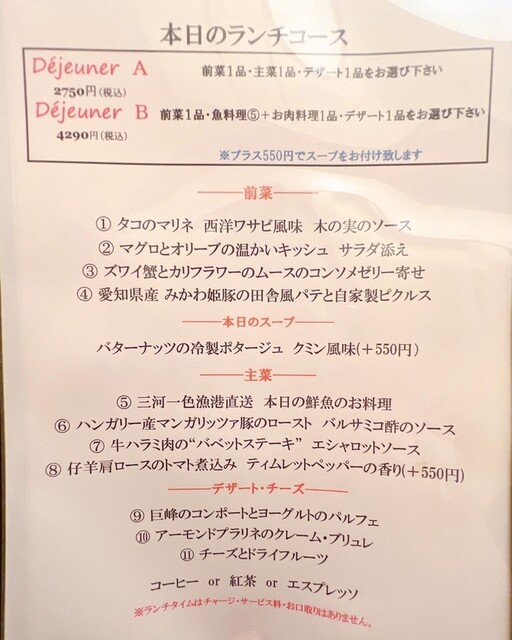 本日のランチコース
Déjeuner A 前菜1品・主菜1品・デザート1品をお選び下さい
2750円(税込)
Déjeuner B 前菜1品・魚料理⑤+お肉料理1品・デザート1品をお選び下さい
4290円(税込)
※プラス550円でスープをお付け致します
前菜
① タコのマリネ 西洋ワサビ風味 木の実のソース
② マグロとオリーブの温かいキッシュ サラダ添え
③ ズワイ蟹とカリフラワーのムースのコンソメゼリー寄せ
④ 愛知県産 みかわ姫豚の田舎風パテと自家製ピクルス
本日のスープ
バターナッツの冷製ポタージュ クミン風味(+550円)
主菜
⑤ 三河一色漁港直送 本日の鮮魚のお料理
⑥ ハンガリー産マンガリッツァ豚のロースト バルサミコ酢のソース
⑦ 牛ハラミ肉の“バベットステーキ” エシャロットソース
⑧ 仔羊肩ロースのトマト煮込み ティムレットペッパーの香り(+550円)
デザート・チーズ
⑨ 巨峰のコンポートとヨーグルトのパルフェ
⑩ アーモンドプラリネのクレーム・ブリュレ
⑪ チーズとドライフルーツ
コーヒー or 紅茶 or エスプレッソ
※ランチタイムはチャージ・サービス料・お口取りはありません。